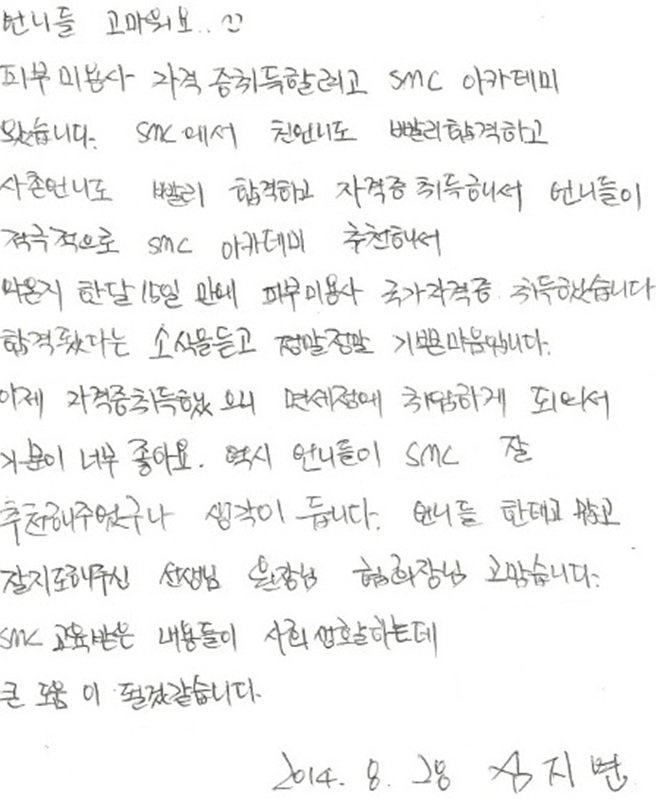 언니들 고마워요.. :)
피부미용사 자격증취득할려고 SMC 아카데미
왔습니다. SMC에서 친언니도 빨리합격하고
사촌언니도 빨리 합격하고 자격증 취득해서 언니들이
적극적으로 SMC 아카데미 추천해서
한달 15일 만에 피부미용사 국가자격증 취득했습니다
합격됐다는 소식을듣고 정말정말 기쁜마음입니다.
이제 자격증취득했으니 면세점에 취업하게 되어서
기분이 너무 좋아요. 역시 언니들이 SMC 잘
추천해주었구나 생각이 듭니다. 언니들 한테고맙고
잘지도해주신 선생님 원장님 협회장님 고맙습니다.
SMC 교육받은 내용들이 사회생활하는데
큰 도움 이 될것같습니다.
2014. 8. 28